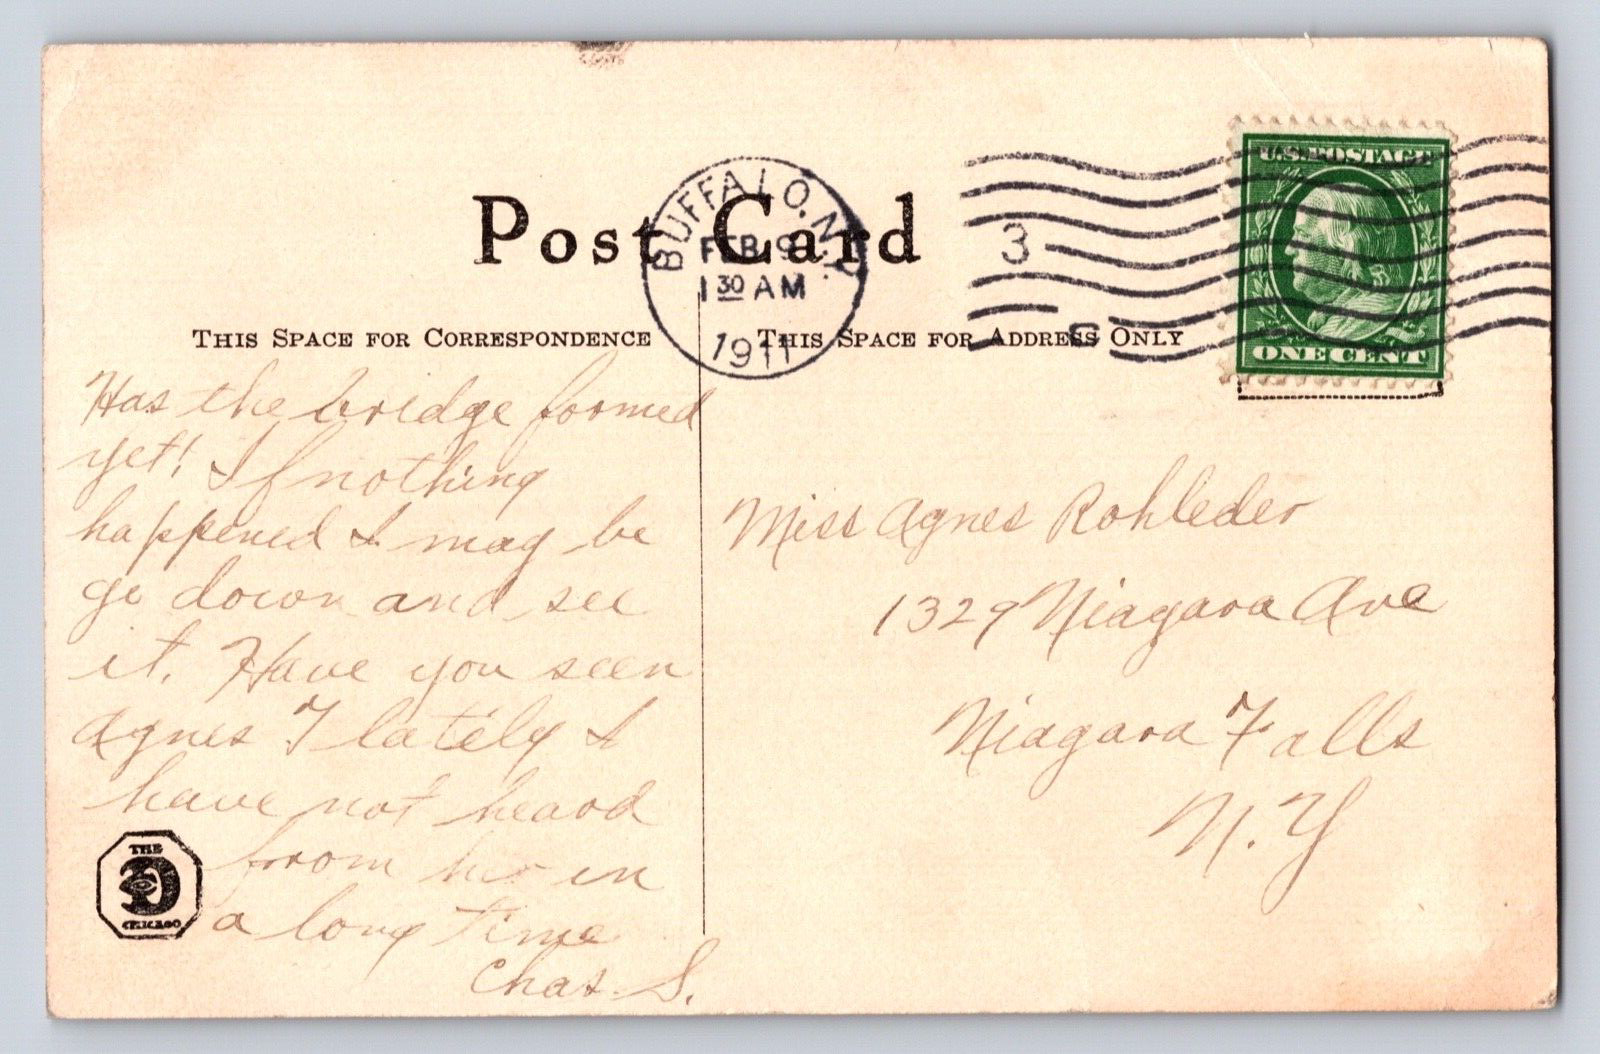 Post Card
BUFFALO, N.Y.
FEB 9
1 30 AM
1911
3
U.S. POSTAGE
ONE CENT
THIS SPACE FOR CORRESPONDENCE
THIS SPACE FOR ADDRESS ONLY
Has the bridge formed
yet! If nothing
happened I may be
go down and see
it. Have you seen
Agnes F lately I
have not heard
from her in
a long time
Chas. S.
Miss Agnes Rohleder
1329 Niagara Ave
Niagara Falls
N.Y
THE
CHICAGO